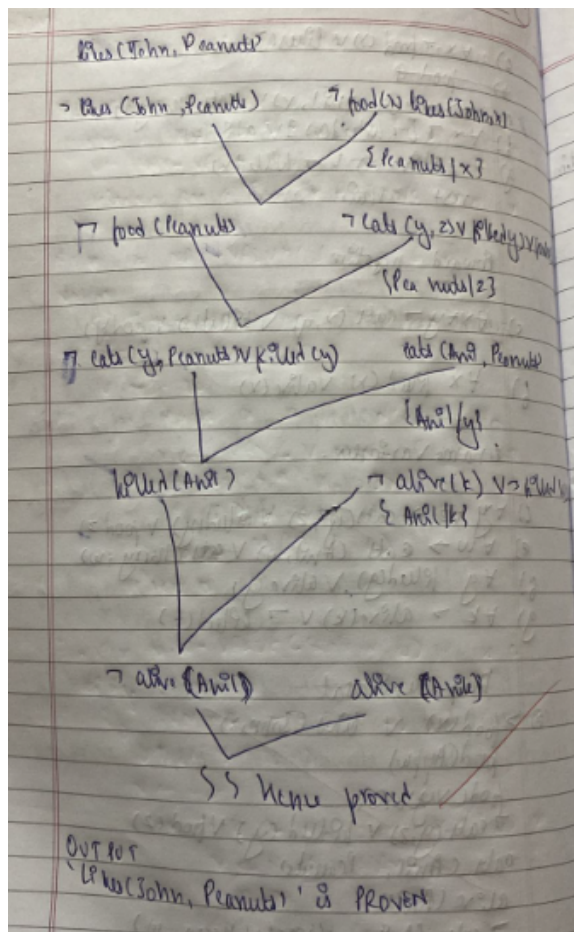 likes(John, Peanuts)
¬ likes (John, Peanuts) ¬ food(x) likes(John,x)
{Peanuts/x}
¬ food (Peanuts ¬ eats (y, z) v killed y) v
{Pea nuts/z}
¬ eats (y, Peanuts) v killed (y) eats (Anil, Peanuts)
{Anil/y}
killed (Anil) ¬ alive (k) v ¬ killed
{Anil/k}
¬ alive (Anil) alive (Anil)
{} Hence proved
OUTPUT
'Likes(John, Peanuts)' is PROVEN